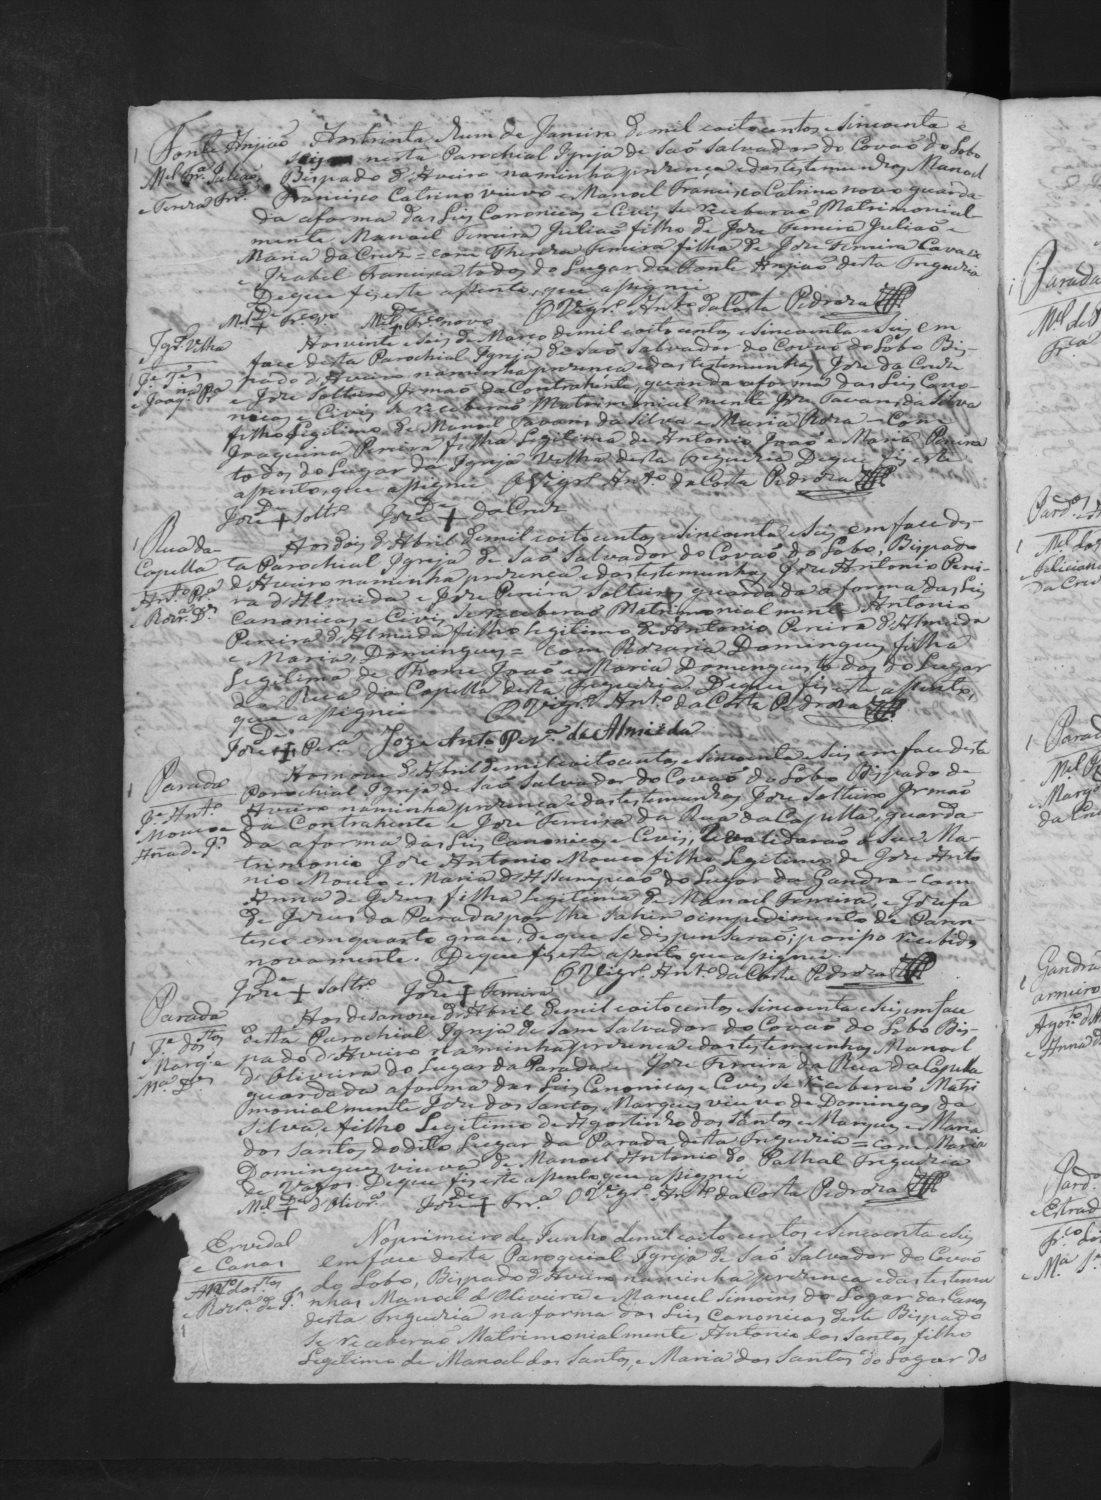 Fonte Anjiaõ
Mel Frª Juliaõ
e Tereza Frª
Aos trinta e hum de Janeiro de mil oito centos e sincoenta e
seis nesta Parochial Igreja de Saõ Salvador do Covaõ do Lobo
Bispado d'Aveiro na minha prezença e das testemunhas Manoel
Francisco Catrino viuvo e Manoel Francisco Catrino novo guarda-
da a forma das Leis Canonicas e Civis se receberaõ Matrimonial-
mente Manoel Ferreira Juliaõ filho de Joze Ferreira Juliaõ e
Maria da Cruz = com Thereza Ferreira filha de Joze Ferreira
e Izabel Francisca todos do Lugar da Fonte Anjiaõ desta Freguezia
De que fiz este assento que assignei
O Vigrº Antº da Costa Pedroza
Mel De + Frco Mel De + Frco novo
Igrª Velha
e Joaqª Pª
Aos vinte e seis de Março de mil oito centos e sincoenta e seis em
face desta Parochial Igreja de Saõ Salvador do Covaõ do Lobo Bis-
pado d'Aveiro na minha prezença e das testemunhas Joze da Cruz
e Joze Solteiro Irmaõ da Contrahente, guardada a forma das Leis Cano-
nicas e Civis se receberaõ Matrimonialmente Joze Tavares da Silva
filho Legitimo de Manoel Tavares da Silva e Maria Roza = Com
Joaquina Pereira filha Legitima de Antonio Joaõ e Maria Pereira
todos do Lugar da Igreja Velha desta Freguezia De que fiz este
assento, que assignei O Vigrº Antº da Costa Pedroza
Joze De + Soltrº Joze De + da Cruz
Rua da
Capella
Antº Pª
e Rozª Dª
Aos dois d'Abril de mil oito centos e sincoenta e seis, em face des-
ta Parochial Igreja de Saõ Salvador do Covaõ do Lobo, Bispado
d'Aveiro na minha prezença e das testemunhas Joze Antonio Perei-
ra d'Almeida e Joze Pereira Solteiro, guardada a forma das Leis
Canonicas e Civis se receberaõ Matrimonialmente Antonio
Pereira d'Almeida filho legitimo de Antonio Pereira d'Almeida
e Maria Domingues = Com Rozaria Domingues filha
Legitima de Thome Joaõ e Maria Domingues todos do Lugar
da Rua da Capella desta Freguezia De que fiz este assento,
que assignei O Vigrº Antº da Costa Pedroza
Joze De + Perª Joze Antº Perª de Almeida
Parada
Jª Antº
Mouco e
Anna de Jª
Aos nove d'Abril de mil oito centos, e sincoenta e seis em face desta
Parochial Igreja de Saõ Salvador do Covaõ do Lobo Bispado de
Aveiro na minha prezença e das testemunhas Joze Solteiro Irmaõ
da Contrahente e Joze Ferreira da Rua da Capella, guarda-
da a forma das Leis Canonicas e Civis, revalidaraõ o seu Ma-
trimonio Joze Antonio Mouco filho Legitimo de Joze Anto
nio Mouco e Maria d'Assumpçaõ do Lugar da Gandra = com
Anna de Jezus filha Legitima de Manoel Ferreira, e Jozefa
de Jezus da Parada por lhe sahir o impedimento de Paren-
tesco em quarto grau, de que se dispensaraõ; por isso recebidos
novamente. De que fiz este assento que assignei
O Vigrº Antº da Costa Pedroza
Joze De + Soltrº Joze De + Ferreira
Parada
Jª dos Stos
Marqs e
Mª Ds
Aos desanove d'Abril de mil oito centos, e sincoenta e seis, em face
desta Parochial Igreja de Sam Salvador do Covaõ do Lobo Bis-
pado d'Aveiro na minha prezença e das testemunhas Manoel
d'Oliveira do Lugar da Parada e Joze Ferreira da Rua da Capella
guardada a forma das Leis Canonicas e Civis se receberaõ Matri
monialmente Joze dos Santos Marques viuvo de Domingas da
Silva, e filho Legitimo de Agostinho dos Santos e Marques e Maria
dos Santos do dito Lugar da Parada desta Freguezia = com Maria
Domingues viuva de Manoel Antonio do Palhal Freguezia
de Vagos De que fiz este assento que assignei
Mel De + d'Olivrª Joze De + Frrª O Vigrº Antº da Costa Pedroza
Ervedal
e Canas
Antº dos Stos
e Rozª de Jª
No primeiro de Junho de mil oito centos e sincoenta e seis
em face desta Paroquial Igreja de Saõ Salvador do Covaõ
do Lobo, Bispado d'Aveiro na minha prezença e das testemu
nhas Manoel de Oliveira e Manoel Simoens do Logar das Canas
desta Freguezia na forma das Leis Canonicas deste Bispado
Se receberaõ Matrimonialmente Antonio dos Santos filho
Legitimo de Manoel dos Santos, e Maria dos Santos do Logar do
Parada
Mel de
Frca
Pardos
Mel dos
e Feliciana
da Cruz
Parad
Mel
e Marga
da Cru
Gandra
Agosº d'A
e Anna d
Pard
e Estrad
Frco Lo
e Mª J